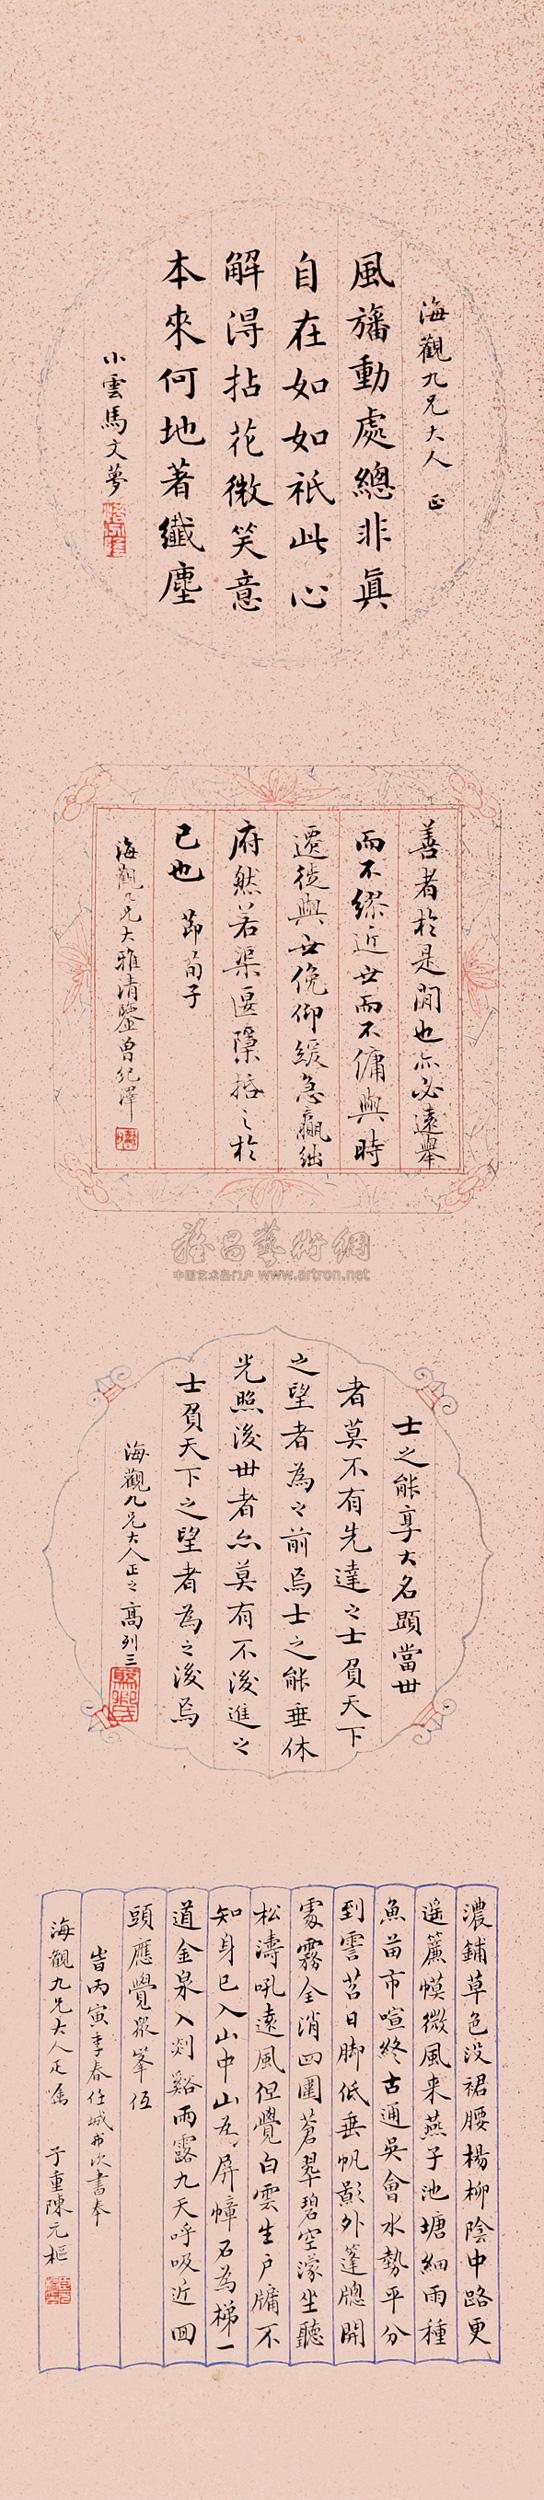 海觀九兄大人 正
風旛動處總非真
自在如如祇此心
解得拈花微笑意
本來何地著纖塵
小雲馬文夢
善者於是閒也亦必遠舉
而不繆近世而不傭與時
遷徙與世俛仰緩急羸絀
府然若渠匽檃栝之於
己也 節荀子
海觀九兄大雅清鑒曾紀澤
中国艺术品门户 www.artron.net
士之能享大名顯當世
者莫不有先達之士負天下
之望者為之前焉士之能垂休
光照後世者亦莫有不後進之
士負天下之望者為之後焉
海觀九兄大人正之高列三
濃鋪草色没裙腰楊柳陰中路更
遥簾幙微風来燕子池塘細雨種
魚苗市喧終古通吳會水勢平分
到霅苕日脚低垂帆影外蓬牕開
處霧全消四圍蒼翠碧空濛坐聽
松濤吼遠風但覺白雲生户牖不
知身已入山中山為屏幛石為梯一
道金泉入剡谿雨露九天呼吸近回
頭應覺眾峯低
旹丙寅季春任城舟次書奉
海觀九兄大人正屬 子重陳元樞